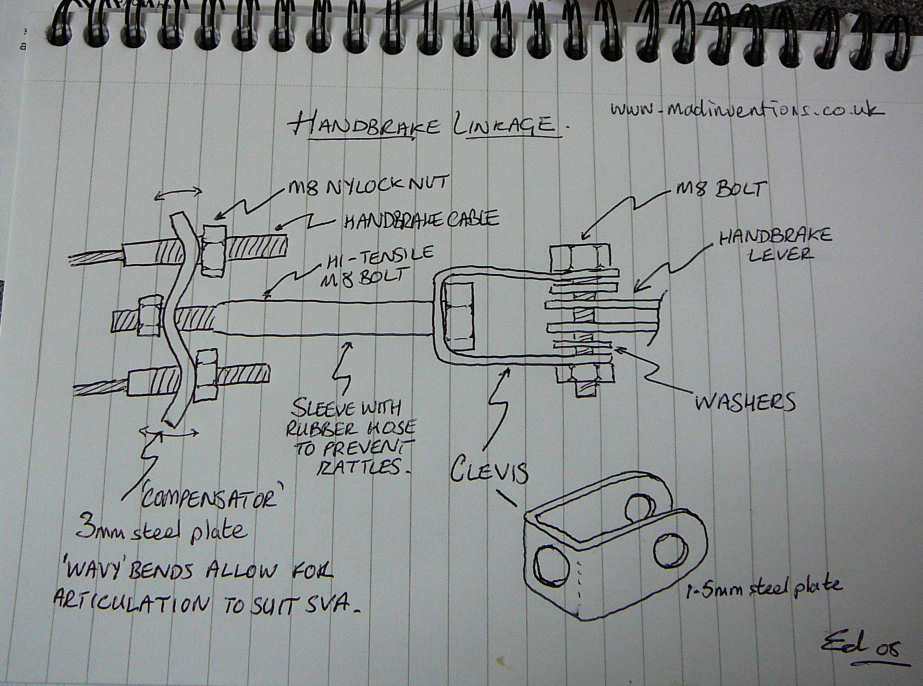 HANDBRAKE LINKAGE.
www.madinventions.co.uk
M8 NYLOCK NUT
HANDBRAKE CABLE
HI-TENSILE
M8 BOLT
M8 BOLT
HANDBRAKE
LEVER
WASHERS
SLEEVE WITH
RUBBER HOSE
TO PREVENT
RATTLES.
CLEVIS
'COMPENSATOR'
3mm steel plate
'WAVY' BENDS ALLOW FOR
ARTICULATION TO SUIT SVA.
1.5mm steel plate
Ed 05